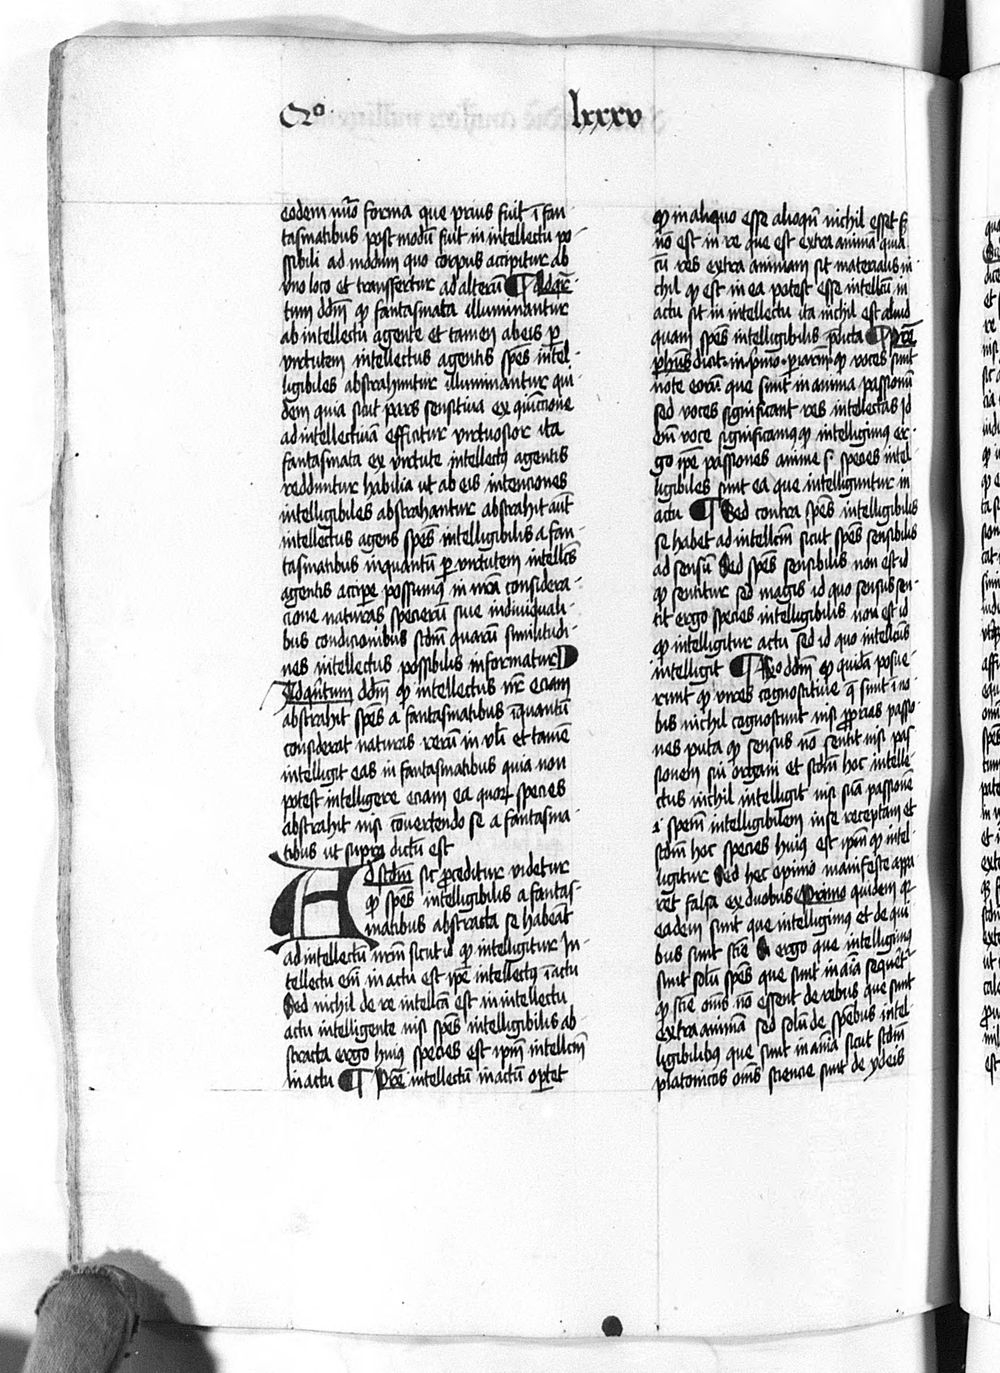 Qo lxxxv
eodem nūo forma que prius fuit ī fan
tasmatibus post modū fuit in intellectu po
ssibili ad modum quo corpus accipitur ab
vno loco et transfertur ad alterū ¶ Ad qr̄
tum dd̄m qꝫ fantasmata illuminantur
ab intellectu agente et tamen ab eis ꝑ
virtutem intellectus agentis spēs intel
ligibiles abstrahuntur illuminantur qui
dem quia sicut pars sensitiua ex ꝯiūctione
ad intellectuā efficitur virtuosior ita
fantasmata ex virtute intellectꝰ agentis
redduntur habilia ut ab eis intenciones
intelligibiles abstrahantur abstrahit aūt
intellectus agens spēs intelligibilis a fan
tasmatibus inquantū ꝑ virtutem intellc̄s
agentis accipe possumꝰ in nr̄a considera
cione naturas specierū siue indiuiduali
bus condicionibus scd̄m quarū similitudi
nes intellectus possibilis informatur
Ad qn̄tum dd̄m qꝫ intellectus nr̄ eciam
abstrahit spēs a fantasmatibus īquantū
considerat naturas rerum in vl̄i et tamē
intelligit eas in fantasmatibus quia non
potest intelligere eciam ea quoꝝ species
abstrahit nisi cōuertendo se a fantasma
tibus ut supra dictū est
Ad scd̄m sic ꝓceditur videtur
qꝫ spēs intelligibilis a fantas
matibus abstracta se habeāt
ad intellectū nrm̄ sicut id qꝫ intelligitur In
tellectu em̄ in actu est ip̄e intellectꝰ ī actu
Sed nichil de re intellc̄a est in intellectu
actu intelligente nisi spēs intelligibilis ab
stracta ergo huiꝰ species est ip̄m intellc̄m
in actu ¶ Pre͞e intellectū in actu oꝑtet
qꝫ in aliquo esse alioqn̄ nichil esset s
nō est in re que est extra animā quia
cū res extra animam sit materialis ni
chil qꝫ est in ea potest esse intellc̄m in
actu sit in intellectu ita nichil est aliud
quam spēs intelligibilis p̄dicta ¶ Pre͞e
ph̄us dicit in pͥmo ꝑiarm̄ qꝫ voces sunt
note eorū que sunt in anima passionū
sed voces significant res intellectas Id
em̄ voce significamꝰ qꝫ intelligimꝰ er
go ip̄e passiones anime s. species intel
ligibiles sunt ea que intelliguntur in
actu ¶ Sed contra spēs intelligibilis
se habet ad intellc̄m sicut spēs sensibilis
ad sensū Sed spēs sensibilis non est id
qꝫ sentitur sed magis id quo sensus sen
tit ergo species intelligibilis non est id
qꝫ intelligitur actu sed id quo intellc̄us
intelligit ¶ Rᵒ dd̄m qꝫ quidā posue
runt qꝫ vires cognoscitiue q̄ sunt ī no
bis nichil cognoscunt nisi ꝓprias passio
nes puta qꝫ sensus nō sentit nisi pas
sionem sui organi et scd̄m hoc intelle
ctus nichil intelligit nisi suā passionē
i. spem̄ intelligibilem in se receptam et
scd̄m hoc species huiꝰ est ip̄m qꝫ intel
ligitur Sed hec opinio manifeste appa
ret falsa ex duobus Primo quidem qꝛ
eadem sunt que intelligimꝰ et de qui
bus sunt scīe Si ergo que intelligimꝰ
sunt solū spēs que sunt in aīa sequēt
qꝫ scīe om̄s nō essent de rebus que sunt
extra animā sed solū de spēbus intel
ligibilibꝰ que sunt in aīa sicut scd̄m
platonicos om̄s sciencie sunt de ydeis